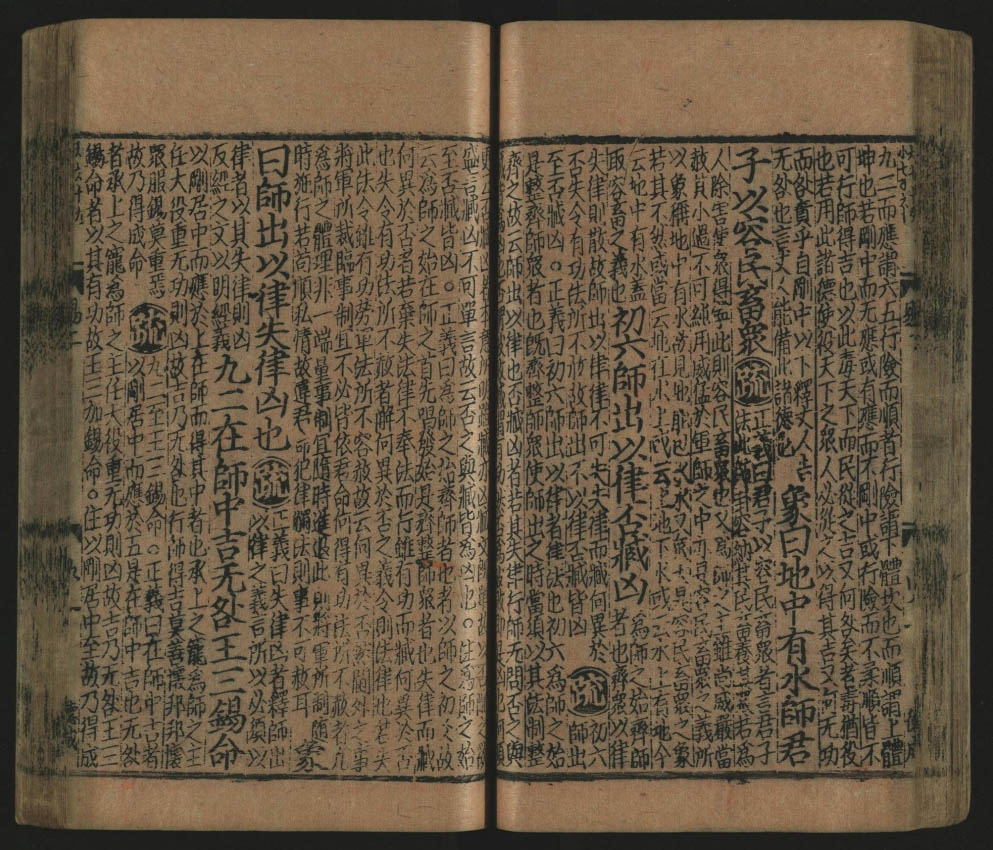 九二而應謂六五行險而順者行險謂下體坎也而順謂上體
坤也若剛中而无應或有應而不剛中或行險而不柔順皆不
可行師得吉也以此毒天下而民從之吉又何咎矣者毒猶役
也若用此諸德使役天下之眾人必從之以得其吉又何无功
而咎責乎自剛中以下釋丈人吉
无咎也言丈人能備此諸德也
象曰地中有水師君
子以容民畜眾 疏 正義曰君子以容民畜眾者言君子
法此師卦容納其民畜養其眾若為
人除害使眾得寧此則容民畜眾也又為師之主雖尚威嚴當
赦其小過不可純用威猛於軍師之中亦是容民畜眾之義所
以象稱地中有水欲見地能包水水又眾大是容民畜眾之象
若其不然或當云地在水上或云上地下水或云水上有地今
云地中有水蓋
取容畜之義也
初六師出以律否臧凶
為師之始齊師
者也齊眾以律
失律則散故師出以律律不可失失律而臧何異於
否失令有功法所不赦故師出不以律否臧皆凶
疏 初六
師出
至否臧凶。正義曰初六師出以律者律法也初六為師之始
是整齊師眾者也既齊整師眾使師出之時當須以其法制整
齊之故云師出以律也否臧凶者若其失律行師无問否之與
至否臧皆凶。正義曰為師之始齊師者也者以師之初爻故
云為師之始在師之首先唱發始是齊整師眾者也失律而臧
何異於否者若棄失法律不奉法而行雖有功而臧何異於否
也失令有功法所不赦者解何異於否之義令則法律也若失
此法令雖有功勞軍法所不容赦故云何異於否然閫外之事
將軍所裁臨事制宜不必皆依君命何得有功法所不赦者凡
為師之體理非一端量事制宜隨時進退此則將軍所制隨
時施行若苟順私情故違君命犯律觸法則事不可赦耳
象
曰師出以律失律凶也 疏 正義曰失律凶者釋師出
以律之義言所以必須以
律者以其失律則凶
反經之文以明經義
九二在師中吉无咎王三錫命
以剛居中而應於上在師而得其中者也承上之寵為師之主
任大役重无功則凶故吉乃无咎也行師得吉莫善懷邦邦懷
眾服錫莫重焉
故乃得成命
疏 九二至王三錫命。正義曰在師中吉者
以剛居中而應於五是在師中吉也无咎
者承上之寵為師之主任大役重无功則凶故吉乃无咎王三
錫命者以其有功故王三加錫命。注以剛居中至故乃得成